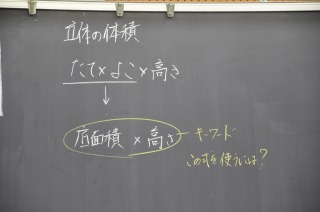 立体の体積
たて×よこ×高さ
↓
底面積 × 高さ
キーワード
この式を使うには?